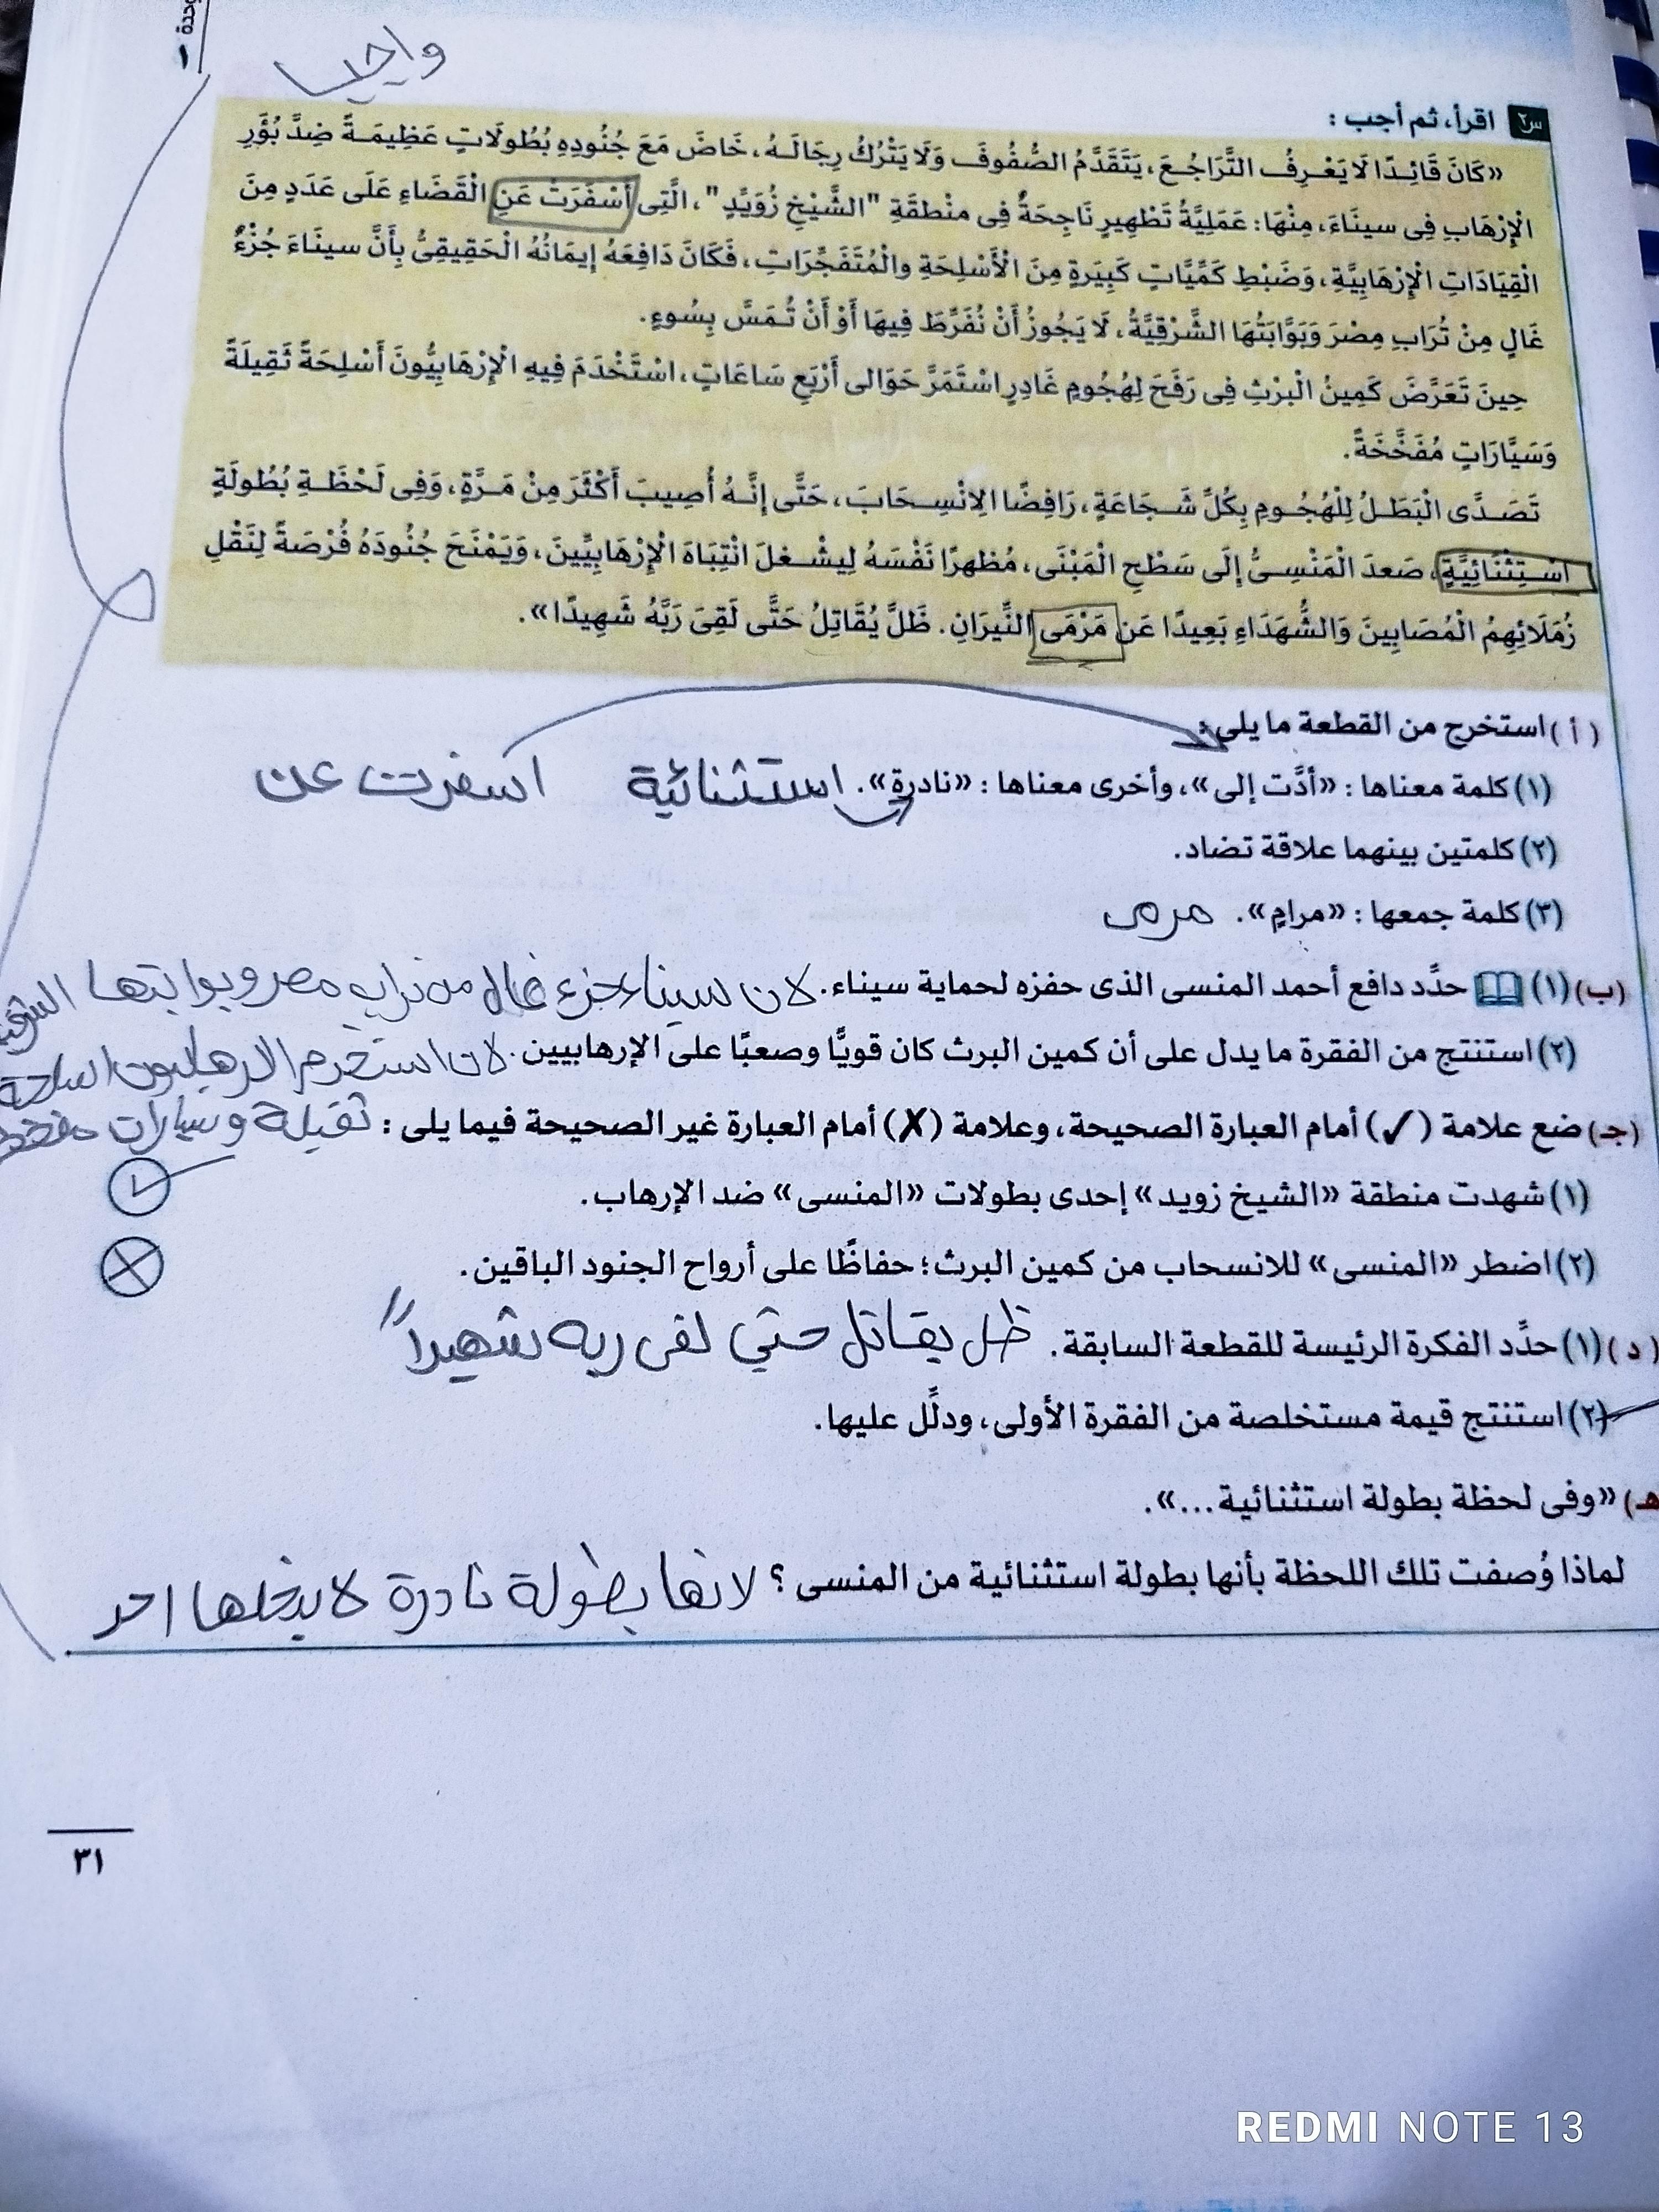 وحدة
١
واجب
س٢ اقرأ، ثم أجب :
«كَانَ قَائِدًا لَا يَعْرِفُ التَّرَاجُعَ، يَتَقَدَّمُ الصُّفُوفَ وَلَا يَتْرُكُ رِجَالَهُ، خَاضَ مَعَ جُنُودِهِ بُطُولَاتٍ عَظِيمَةً ضِدَّ بُؤَرِ
الْإِرْهَابِ فِى سينَاءَ، مِنْهَا: عَمَلِيَّةُ تَطْهِيرٍ نَاجِحَةٌ فِى مِنْطَقَةِ "الشَّيْخِ زُوَيِّدٍ"، الَّتِى أَسْفَرَتْ عَنِ الْقَضَاءِ عَلَى عَدَدٍ مِنَ
الْقِيَادَاتِ الْإِرْهَابِيَّةِ، وَضَبْطِ كَمِّيَّاتٍ كَبِيَرةٍ مِنَ الْأَسْلِحَةِ والْمُتَفَجِّرَاتِ، فَكَانَ دَافِعَهُ إِيمَانُهُ الْحَقِيقِىُّ بِأَنَّ سينَاءَ جُزْءٌ
غَالٍ مِنْ تُرَابِ مِصْرَ وَبَوَّابَتُهَا الشَّرْقِيَّةُ، لَا يَجُوزُ أَنْ نُفَرِّطَ فِيهَا أَوْ أَنْ تُمَسَّ بِسُوءٍ.
حِينَ تَعَرَّضَ كَمِينُ الْبَرْثِ فِى رَفَحَ لِهُجُومٍ غَادِرٍ اسْتَمَرَّ حَوَالى أَرْبَعِ سَاعَاتٍ، اسْتَخْدَمَ فِيهِ الْإِرْهَابِيُّونَ أَسْلِحَةً ثَقِيلَةً
وَسَيَّارَاتٍ مُفَخَّخَةً.
تَصَدَّى الْبَطَلُ لِلْهُجُومِ بِكُلِّ شَجَاعَةٍ، رَافِضًا الِانْسِحَابَ، حَتَّى إِنَّهُ أُصِيبَ أَكْثَرَ مِنْ مَرَّةٍ، وَفِى لَحْظَةِ بُطُولَةٍ
اسْتِثْنَائِيَّةٍ، صَعدَ الْمَنْسِىُّ إِلَى سَطْحِ الْمَبْنَى، مُظهرًا نَفْسَهُ لِيشْغلَ انْتِبَاهَ الْإِرْهَابِيِّينَ، وَيَمْنَحَ جُنُودَهُ فُرْصَةً لِنَقْلِ
زُمَلَائِهِمُ الْمُصَابِينَ وَالشُّهَدَاءِ بَعِيدًا عَن مَرْمَى النِّيرَانِ. ظَلَّ يُقَاتِلُ حَتَّى لَقِىَ رَبَّهُ شَهِيدًا».
(أ) استخرج من القطعة ما يلى:
(١) كلمة معناها : «أدَّت إلى»، وأخرى معناها : «نادرة». استثنائية اسفرت عن
(٢) كلمتين بينهما علاقة تضاد.
(٣) كلمة جمعها : «مرامٍ». مرمى
(ب) (١) حدِّد دافع أحمد المنسى الذى حفزه لحماية سيناء. لان سيناء جزء غال من تراب مصر وبوابتها
(٢) استنتج من الفقرة ما يدل على أن كمين البرث كان قويًّا وصعبًا على الإرهابيين. لان استخدم الارهابيون اسلحة
(جـ) ضع علامة (✓) أمام العبارة الصحيحة، وعلامة (✗) أمام العبارة غير الصحيحة فيما يلى : ثقيلة وسيارات
(١) شهدت منطقة «الشيخ زويد» إحدى بطولات «المنسى» ضد الإرهاب. ✓
(٢) اضطر «المنسى» للانسحاب من كمين البرث؛ حفاظًا على أرواح الجنود الباقين. ✗
(د) (١) حدِّد الفكرة الرئيسة للقطعة السابقة. ظل يقاتل حتي لقى ربه شهيداً
(٢) استنتج قيمة مستخلصة من الفقرة الأولى، ودلِّل عليها.
هـ) «وفى لحظة بطولة استثنائية...».
لماذا وُصفت تلك اللحظة بأنها بطولة استثنائية من المنسى ؟ لانها بطولة نادرة لا يفعلها احد
٣١
REDMI NOTE 13